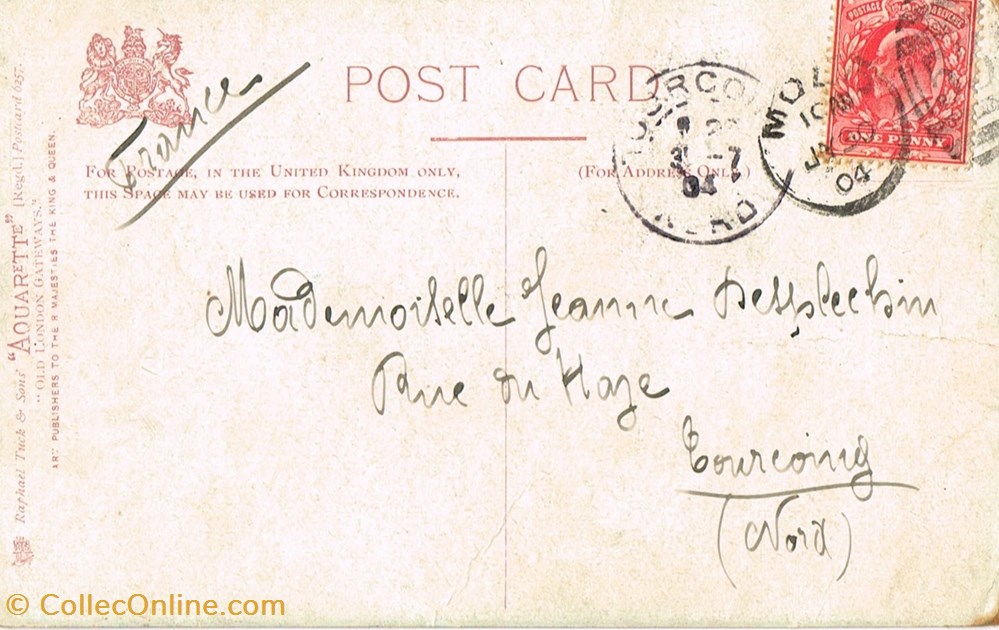 POST CARD
FOR POSTAGE, IN THE UNITED KINGDOM ONLY,
THIS SPACE MAY BE USED FOR CORRESPONDENCE.
(FOR ADDRESS ONLY.)
France
Raphael Tuck & Sons' "AQUARETTE" [Regd.] Postcard 6957.
"OLD LONDON GATEWAYS."
ART PUBLISHERS TO THEIR MAJESTIES THE KING & QUEEN.
04
NORD
04
POSTAGE REVENUE
ONE PENNY
Mademoiselle Jeanne Desplechin
Rue du Haze
Tourcoing
(Nord)
© CollecOnline.com